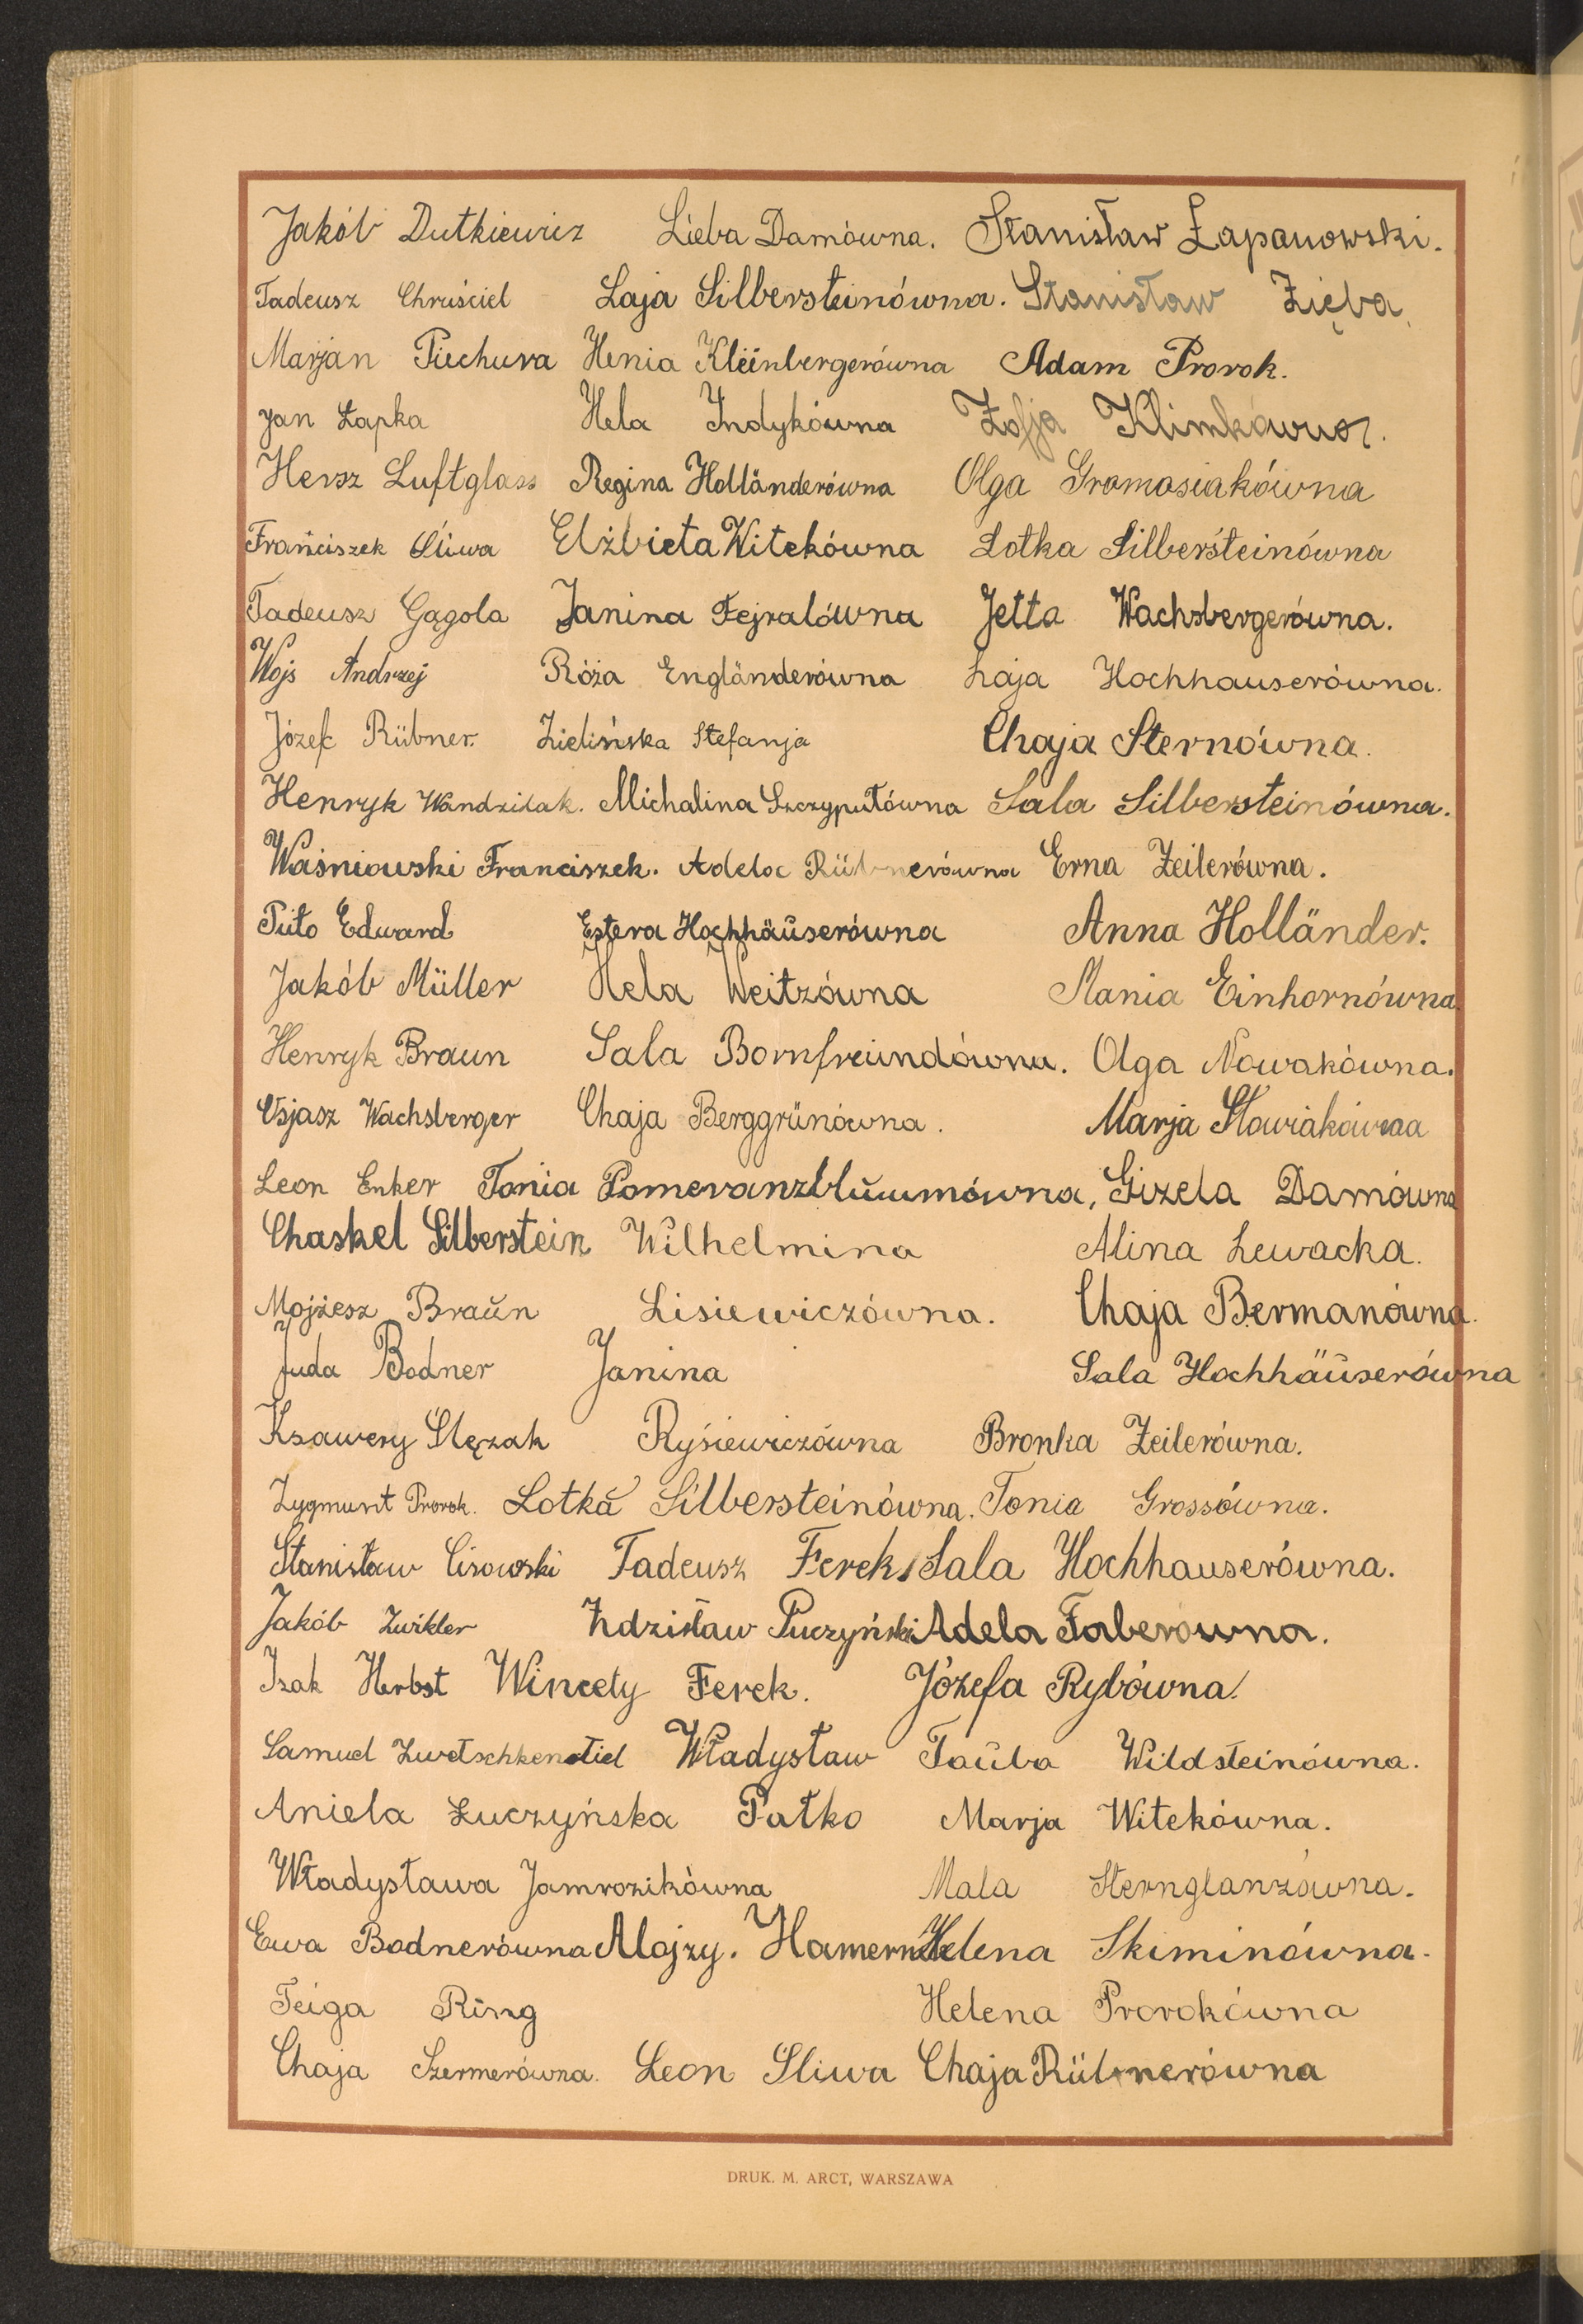 Jakób Dutkiewicz Lieba Damówna. Stanisław Łapanowski.
Tadeusz Chruściel Łaja Silbersteinówna. Stanisław Zięba
Marjan Piechura Henia Kleinbergerówna Adam Prorok.
Jan Łapka Hela Indykówna Zofja Klimkówna.
Hersz Luftglass Regina Holländerówna Olga Gromosiakówna
Franciszek Śliwa Elżbieta Witekówna Lotka Silbersteinówna
Tadeusz Gągola Janina Fejralówna Jetta Wachsbergerówna.
Wojs Andrzej Róża Engländerówna Łaja Hochhauserówna.
Józef Rübner. Zielińska Stefanja Chaja Sternówna.
Henryk Wandzilak. Michalina Szczyputówna Sala Silbersteinówna.
Waśniowski Franciszek. Adela Rübnerówna Erna Zeilerówna.
Pito Edward Estera Hochhäuserówna Anna Holländer.
Jakób Müller Hela Weitzówna Mania Einhornówna.
Henryk Braun Sala Bornfreundówna. Olga Nowakówna.
Osjasz Wachsberger Chaja Berggrünówna. Marja Słowiakówna
Leon Enker Tonia Pomeranzblumówna, Gizela Damówna
Chaskel Silberstein Wilhelmina Alina Lewacka.
Mojżesz Braun Lisiewiczówna. Chaja Bermanówna.
Juda Bodner Janina Sala Hochhäuserówna
Ksawery Ślęzak Ryśiewiczówna Bronka Zeilerówna.
Zygmunt Prorok. Lotka Silbersteinówna. Tonia Grossówna.
Stanisław Cisowski Tadeusz Ferek Sala Hochhauserówna.
Jakób Zwikler Zdzisław Puczyński Adela Faberowna.
Izak Herbst Wincety Ferek. Józefa Rybówna.
Samuel Zwetschkenstiel Władysław Tauba Wildsteinówna.
Aniela Łuczyńska Pałko Marja Witekówna.
Władysława Jamrozikówna Mala Sternglanzówna.
Ewa Bodnerówna Alojzy. Hamernik Helena Skiminówna.
Feiga Ring Helena Prorokówna
Chaja Szermerówna. Leon Śliwa Chaja Rübnerówna
DRUK. M. ARCT, WARSZAWA